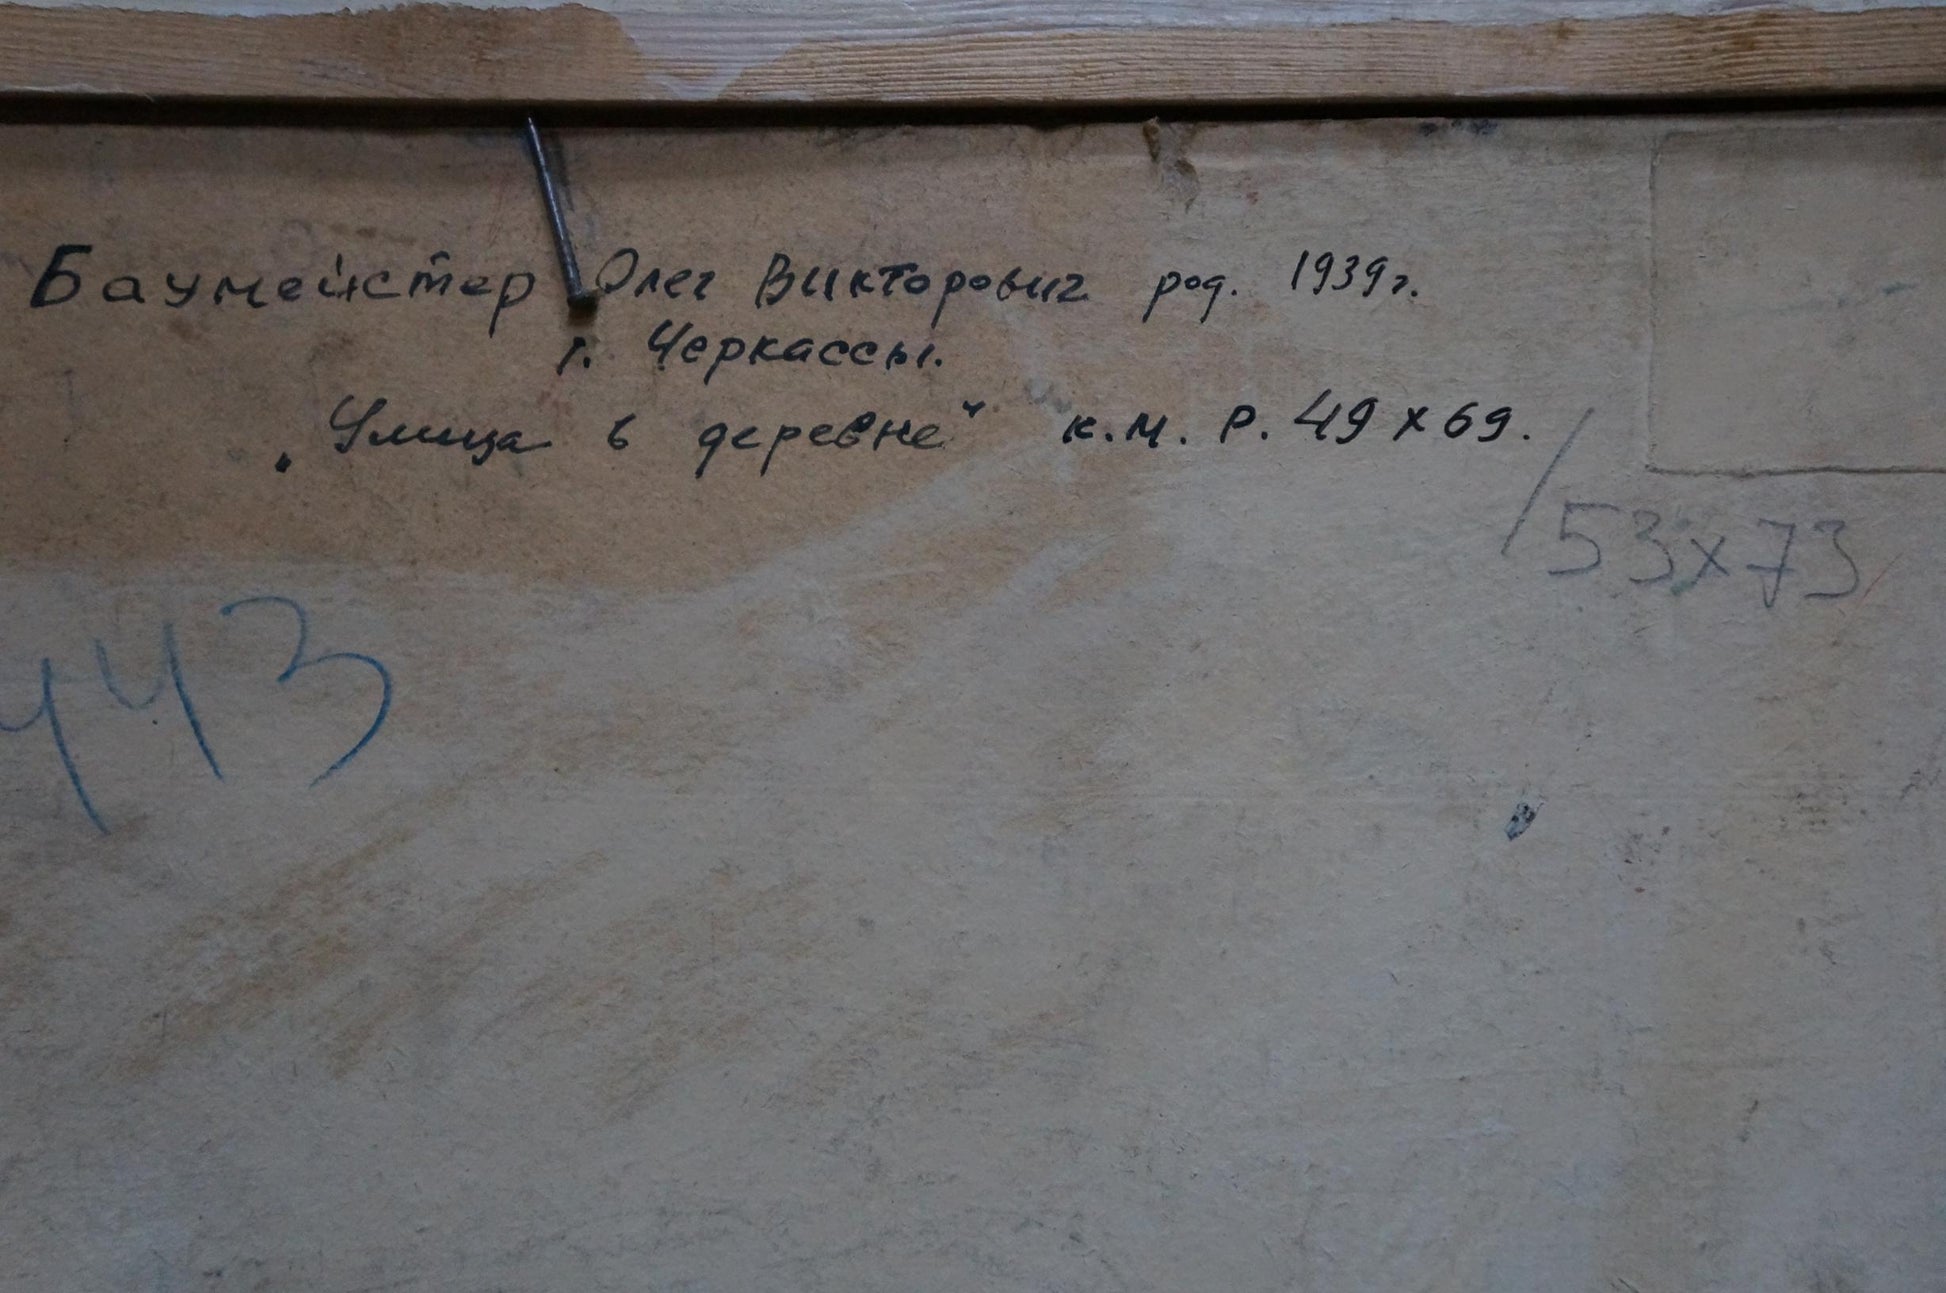 Баумейстер Олег Викторович род. 1939г.
г. Черкассы.
„Улица в деревне“ к.м. Р. 49 х 69.
/53х73
443